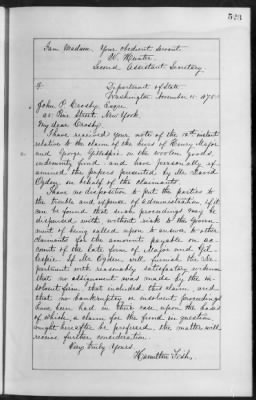 523
I am Madam, Your obedient servant
W. Hunter
Second Assistant Secretary
Department of State
Washington November 15, 1875
John P. Crosby, Esqre
20 Pine Street, New York.
My dear Crosby:
I have received your note of the 12th instant
relative to the claim of the heirs of Henry Major
and George Gillespie on the woolen goods
indemnity fund and have personally ex-
amined the papers presented by Mr. David
Ogden, on behalf of the claimants.
I have no disposition to put the parties to
the trouble and expense of administration if it
can be found that such proceedings may be
dispensed with without risk to the Govern-
ment of being called upon to answer to other
claimants for the amounts payable on ac-
count of the late firm of Major and Gil-
lespie. If Mr. Ogden will furnish the De-
partment with reasonably satisfactory evidence
that no assignment was made by the in-
solvent firm, that included this claim, and
that no bankruptcy or insolvent proceedings
have been had in their case, upon the basis
of which a claim for the fund in question
might hereafter be preferred, the matter will
receive further consideration.
Very truly Yours
Hamilton Fish.